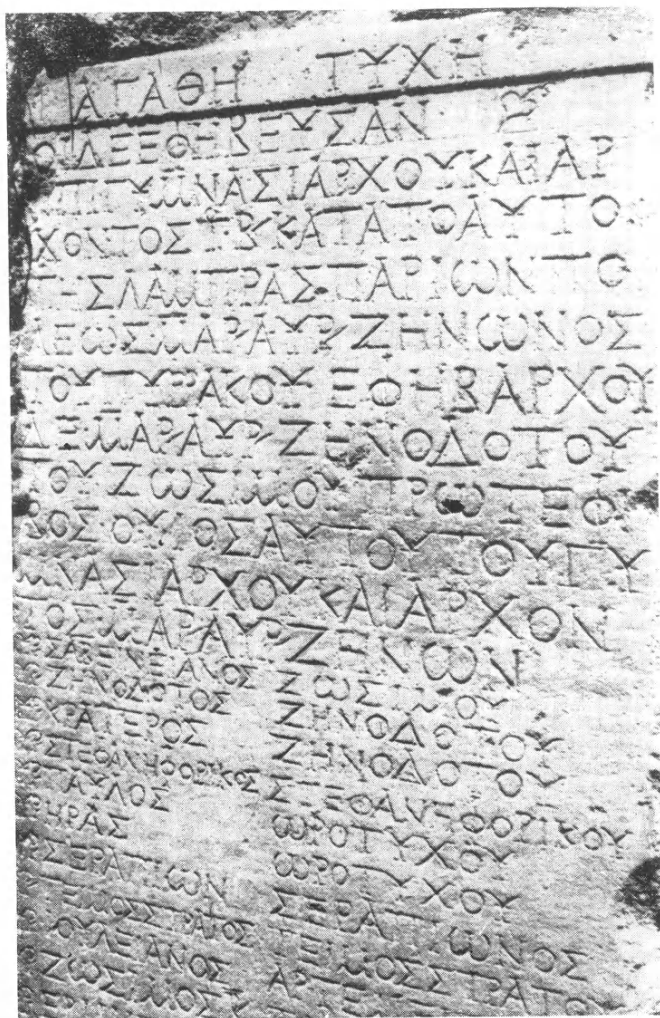 ΑΓΑΘΗ ΤΥΧΗ
ΟΙΔΕ ΕΦΗΒΕΥΣΑΝ
ΕΠΙ ΓΥΜΝΑΣΙΑΡΧΟΥ ΚΑΙ ΑΡ
ΧΟΝΤΟΣ ΤΒ ΚΑΤΑ ΤΟ ΑΥΤΟ
ΤΗΣ ΛΑΜΠΡΑΣ ΠΑΡΙΩΝ ΠΟ
ΛΕΩΣ ΜΑΡ ΑΥΡ ΖΗΝΩΝΟΣ
ΤΟΥ ΕΦΗΒΑΡΧΟΥ
ΔΕ ΜΑΡ ΑΥΡ ΖΗΝΟΔΟΤΟΥ
ΤΟΥ ΖΩΣΙΜΟΥ ΠΡΩΤΕΦ
ΒΟΣ Ο ΥΙΟΣ ΑΥΤΟΥ ΤΟΥ ΓΥ
ΜΝΑΣΙΑΡΧΟΥ ΚΑΙ ΑΡΧΟΝ
ΤΟΣ ΜΑΡ ΑΥΡ ΖΗΝΩΝ
ΣΑΒΕΙΝΙΑΝΟΣ ΖΩΣΙΜΟΥ
ΖΗΝΟΔΟΤΟΣ ΖΗΝΟΔΟΤΟΥ
ΚΡΑΤΕΡΟΣ ΖΗΝΟΔΟΤΟΥ
ΣΤΕΦΑΝΗΦΟΡΙΚΟΣ ΣΤΕΦΑΝΗΦΟΡΙΚΟΥ
ΠΑΥΛΟΣ ΩΡΟΤΥΧΟΥ
ΘΗΡΑΣ ΩΡΟΤΥΧΟΥ
ΣΕΡΑΠΙΩΝ ΣΕΡΑΠΙΩΝΟΣ
ΤΕΙΜΟΣΣΤΡΑΤΟΣ ΤΕΙΜΟΣΣΤΡΑΤΟΥ
ΖΩΣΙΜΟΣ